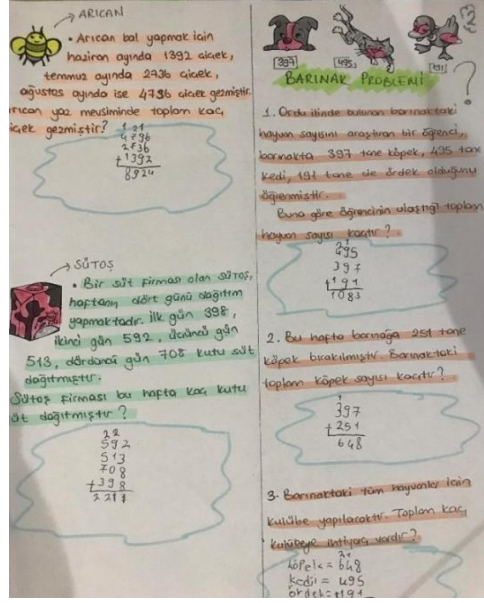 ARICAN
• Arıcan bal yapmak için
haziran ayında 1392 çiçek,
temmuz ayında 2736 çiçek,
ağustos ayında ise 4796 çiçek gezmiştir.
Arıcan yaz mevsiminde toplam kaç
çiçek gezmiştir?
1 2 1
4796
2736
+1392
8924
SÜTOŞ
• Bir süt firması olan SÜTOŞ,
haftanın dört günü dağıtım
yapmaktadır. İlk gün 398,
ikinci gün 592, üçüncü gün
513, dördüncü gün 708 kutu süt
dağıtmıştır.
Sütoş firması bu hafta kaç kutu
süt dağıtmıştır?
2 2
592
513
708
+398
2211
397
495
191
BARINAK PROBLEMİ
?
1. Ordu ilinde bulunan barınaktaki
hayvan sayısını araştıran bir öğrenci,
barınakta 397 tane köpek, 495 tane
kedi, 191 tane de ördek olduğunu
öğrenmiştir.
Buna göre öğrencinin ulaştığı toplam
hayvan sayısı kaçtır?
2 1
495
397
+191
1083
2. Bu hafta barınağa 251 tane
köpek bırakılmıştır. Barınaktaki
toplam köpek sayısı kaçtır?
1
397
+251
648
3. Barınaktaki tüm hayvanlar için
kulübe yapılacaktır. Toplam kaç
kulübeye ihtiyaç vardır?
köpek = 648
kedi = 495
ördek = +191